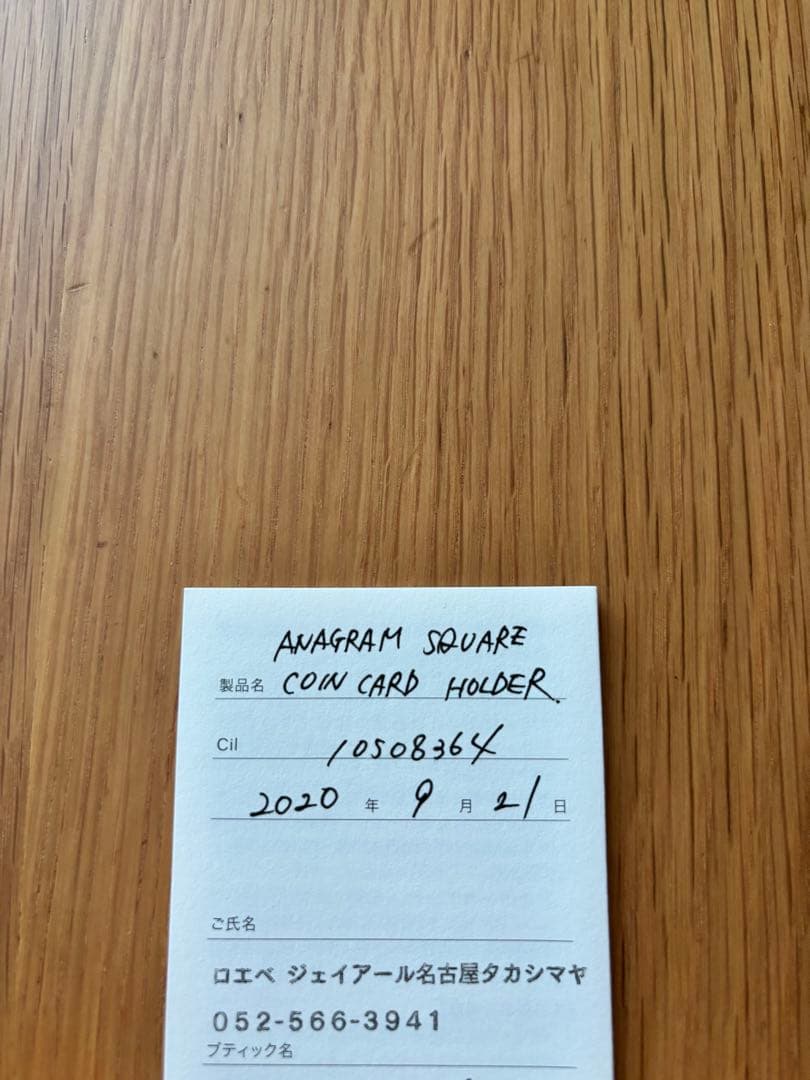 ANAGRAM SQUARE
製品名 COIN CARD HOLDER.
Cil 10508364
2020 年 9 月 21 日
ご氏名
ロエベ ジェイアール名古屋タカシマヤ
052-566-3941
ブティック名